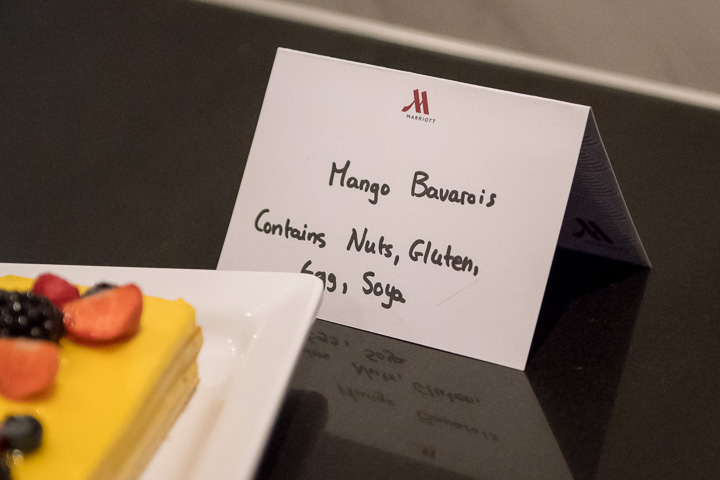 MARRIOTT
Mango Bavarois
Contains Nuts, Gluten,
Egg, Soya